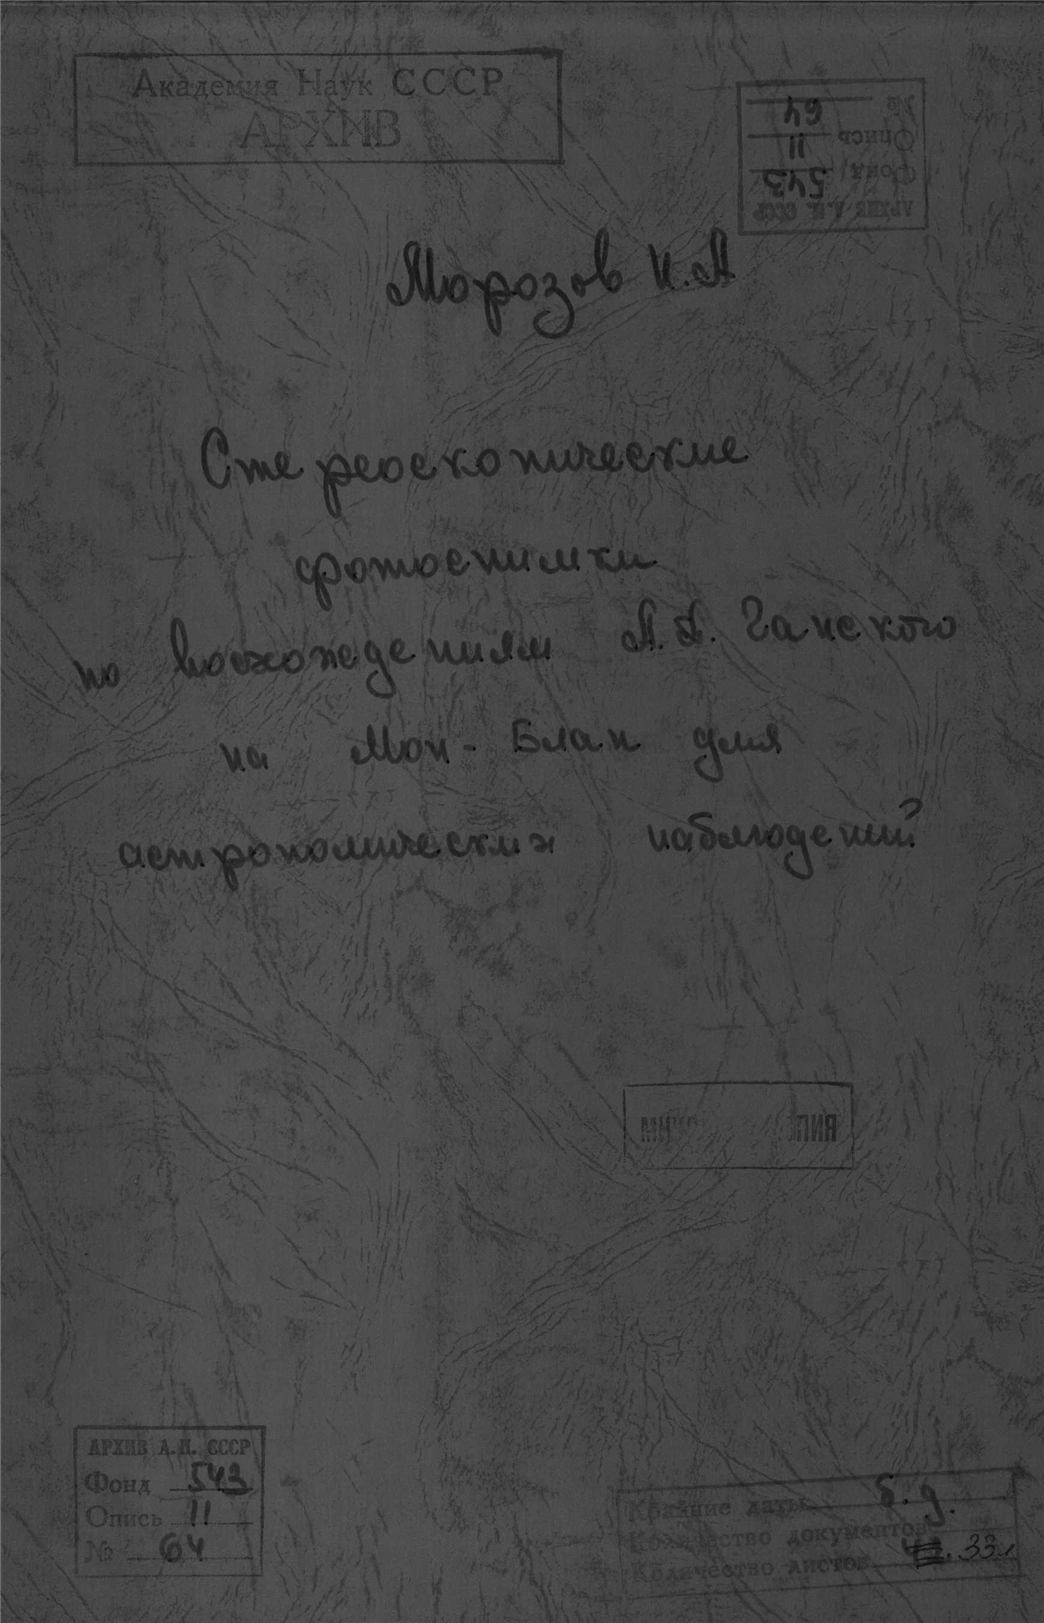 Академия Наук СССР
АРХИВ
№ 64
Опись 11
Фонд 543
АРХИВ А.Н. СССР
Морозов Н.А
Стереоскопические
фотоснимки
по восхождениям А.П. Ганского
на Мон-Блан для
астрономических наблюдений
АРХИВ А.Н. СССР
Фонд 543
Опись 11
№ 64
Крайние даты б.д.
Количество документов
Количество листов 33л